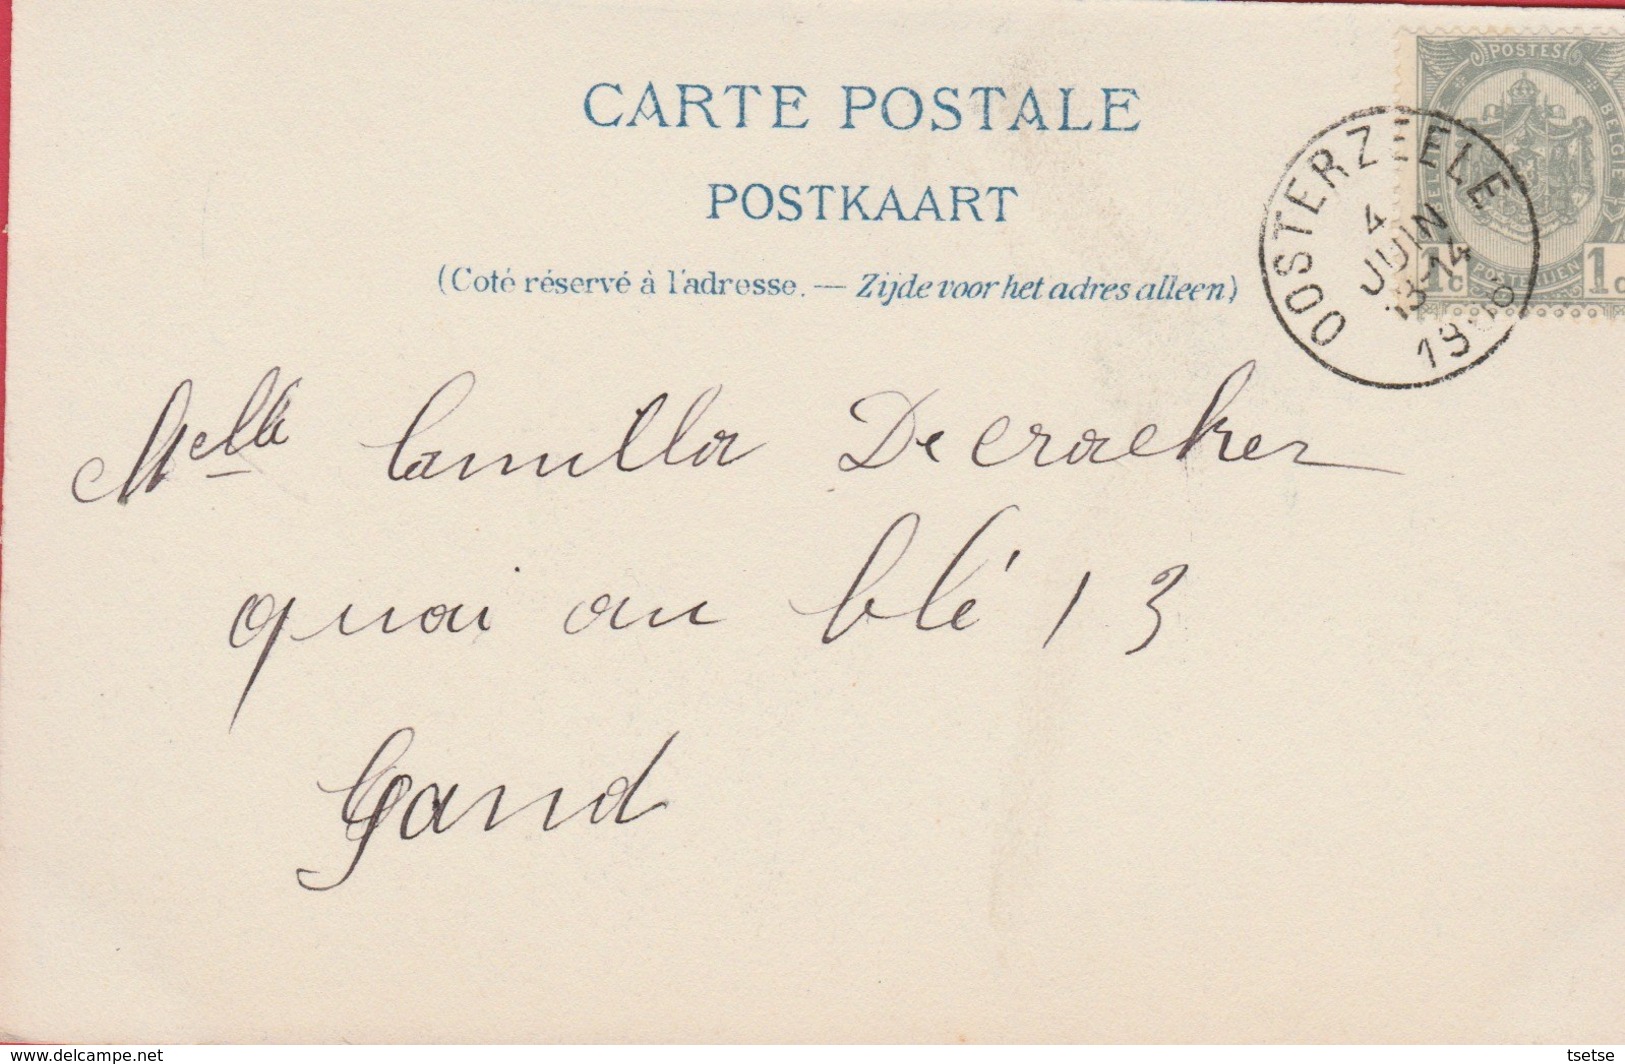 CARTE POSTALE
POSTKAART
(Coté réservé à l'adresse. — Zijde voor het adres alleen)
POSTES
BELGIE
POSTERIJEN
1c 1c
OOSTERZEELE
4
JUIN
13-14
Melle Camilla Decraeker
quai au blé 13
Gand
www.delcampe.net
tsetse